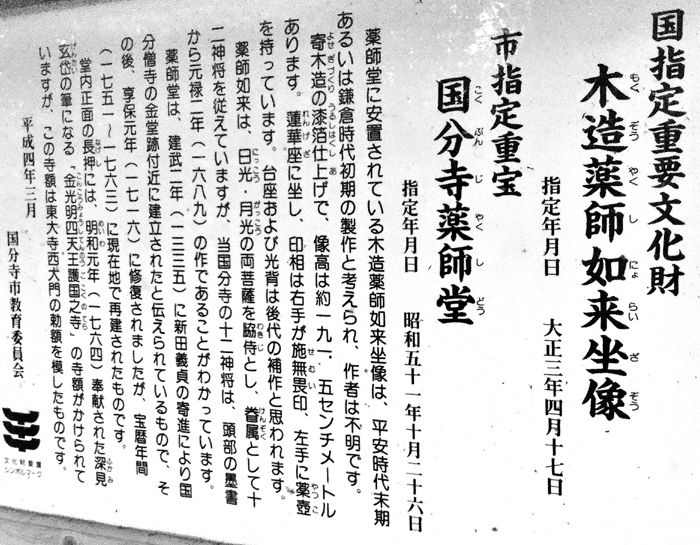 国指定重要文化財
木造薬師如来坐像
もく ぞう やく し にょ らい ざ ぞう
指定年月日 大正三年四月十七日
市指定重宝
国分寺薬師堂
こく ぶん じ やく し どう
指定年月日 昭和五十一年十月二十六日
薬師堂に安置されている木造薬師如来坐像は、平安時代末期
あるいは鎌倉時代初期の製作と考えられ、作者は不明です。
よせぎづくり うるしはくし あ
寄木造の漆箔仕上げで、像高は約一九一、五センチメートル
あります。蓮華座に坐し、印相は右手が施無畏印、左手に薬壺
れんげざ せむい やつこ
を持っています。台座および光背は後代の補作と思われます。
薬師如来は、日光・月光の両菩薩を脇侍とし、眷属として十
にっこう がっこう わきじ けんぞく
二神将を従えていますが、当国分寺の十二神将は、頭部の墨書
から元禄二年(一六八九)の作であることがわかっています。
薬師堂は、建武二年(一三三五)に新田義貞の寄進により国
分僧寺の金堂跡付近に建立されたと伝えられているもので、そ
の後、享保元年(一七一六)に修復されましたが、宝暦年間
(一七五一〜一七六三)に現在地で再建されたものです。
堂内正面の長押には、明和元年(一七六四)奉献された深見
なげし めいわ ふかみ
玄岱の筆になる「金光明四天王護国之寺」の寺額がかけられて
げんたい こんこうみょうしてんのうごこくのてら
いますが、この寺額は東大寺西大門の勅額を模したものです。
平成四年三月
国分寺市教育委員会
文化財愛護
シンボルマーク